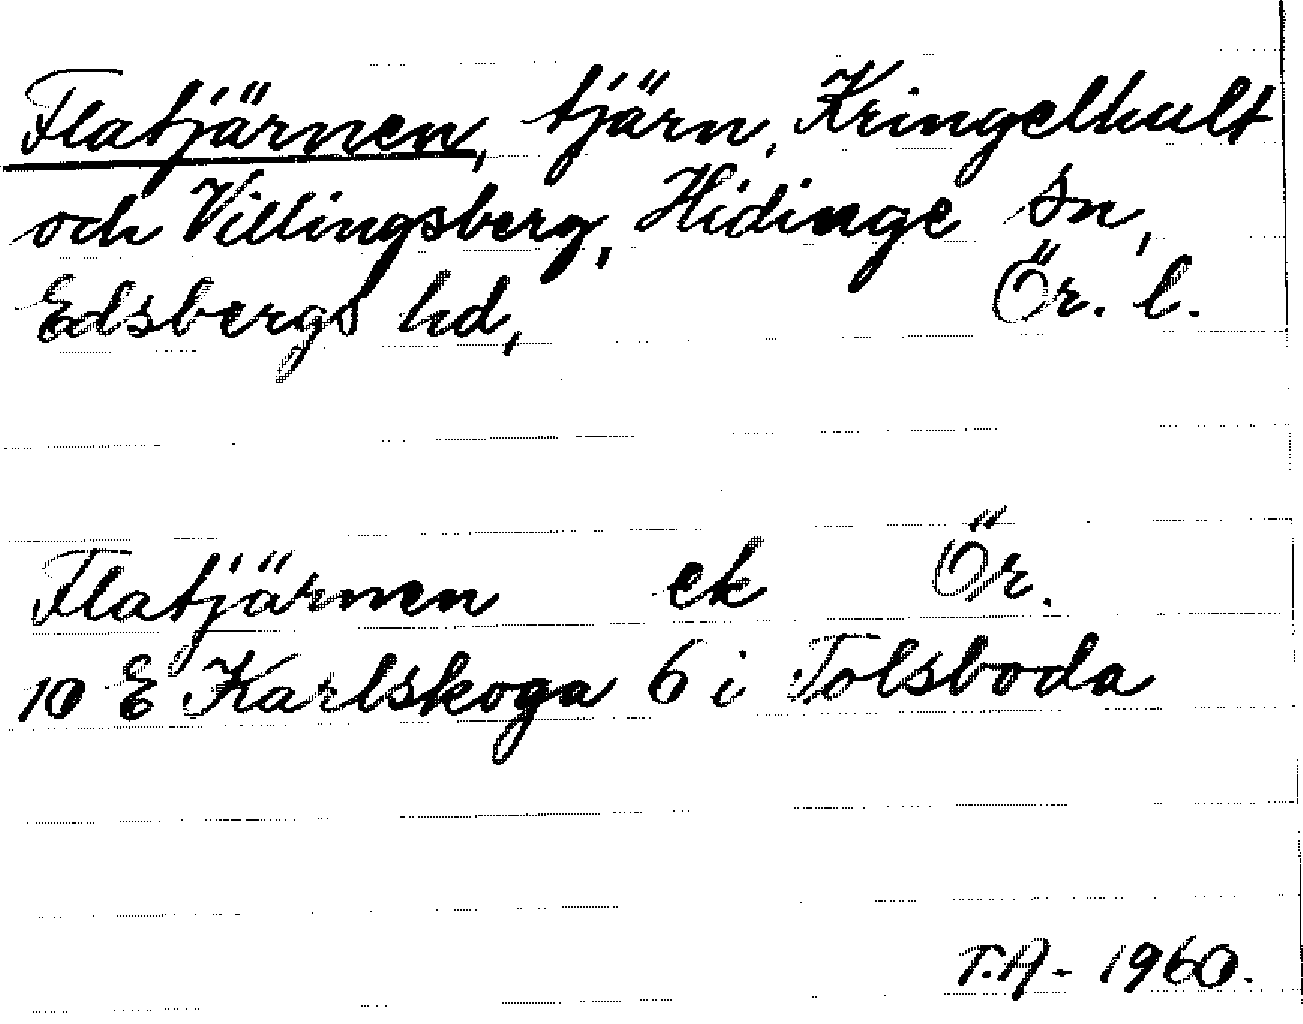 Flatjärnen, tjärn, Kringelhult
och Villingsberg, Hidinge sn,
Edsbergs hd, Ör. l.
Flatjärnen ek Ör.
10 E Karlskoga 6 i Tolsboda
T.A- 1960.